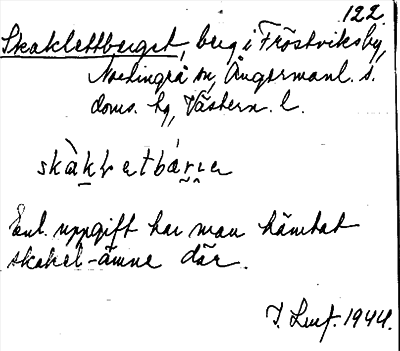 122.
Skaklettberget, berg i Fröstviksby,
Nordingrå sn, Ångermanl. s.
doms. hg, Västern. l.
Enl. uppgift har man hämtat
skakel-ämne där.
1944.